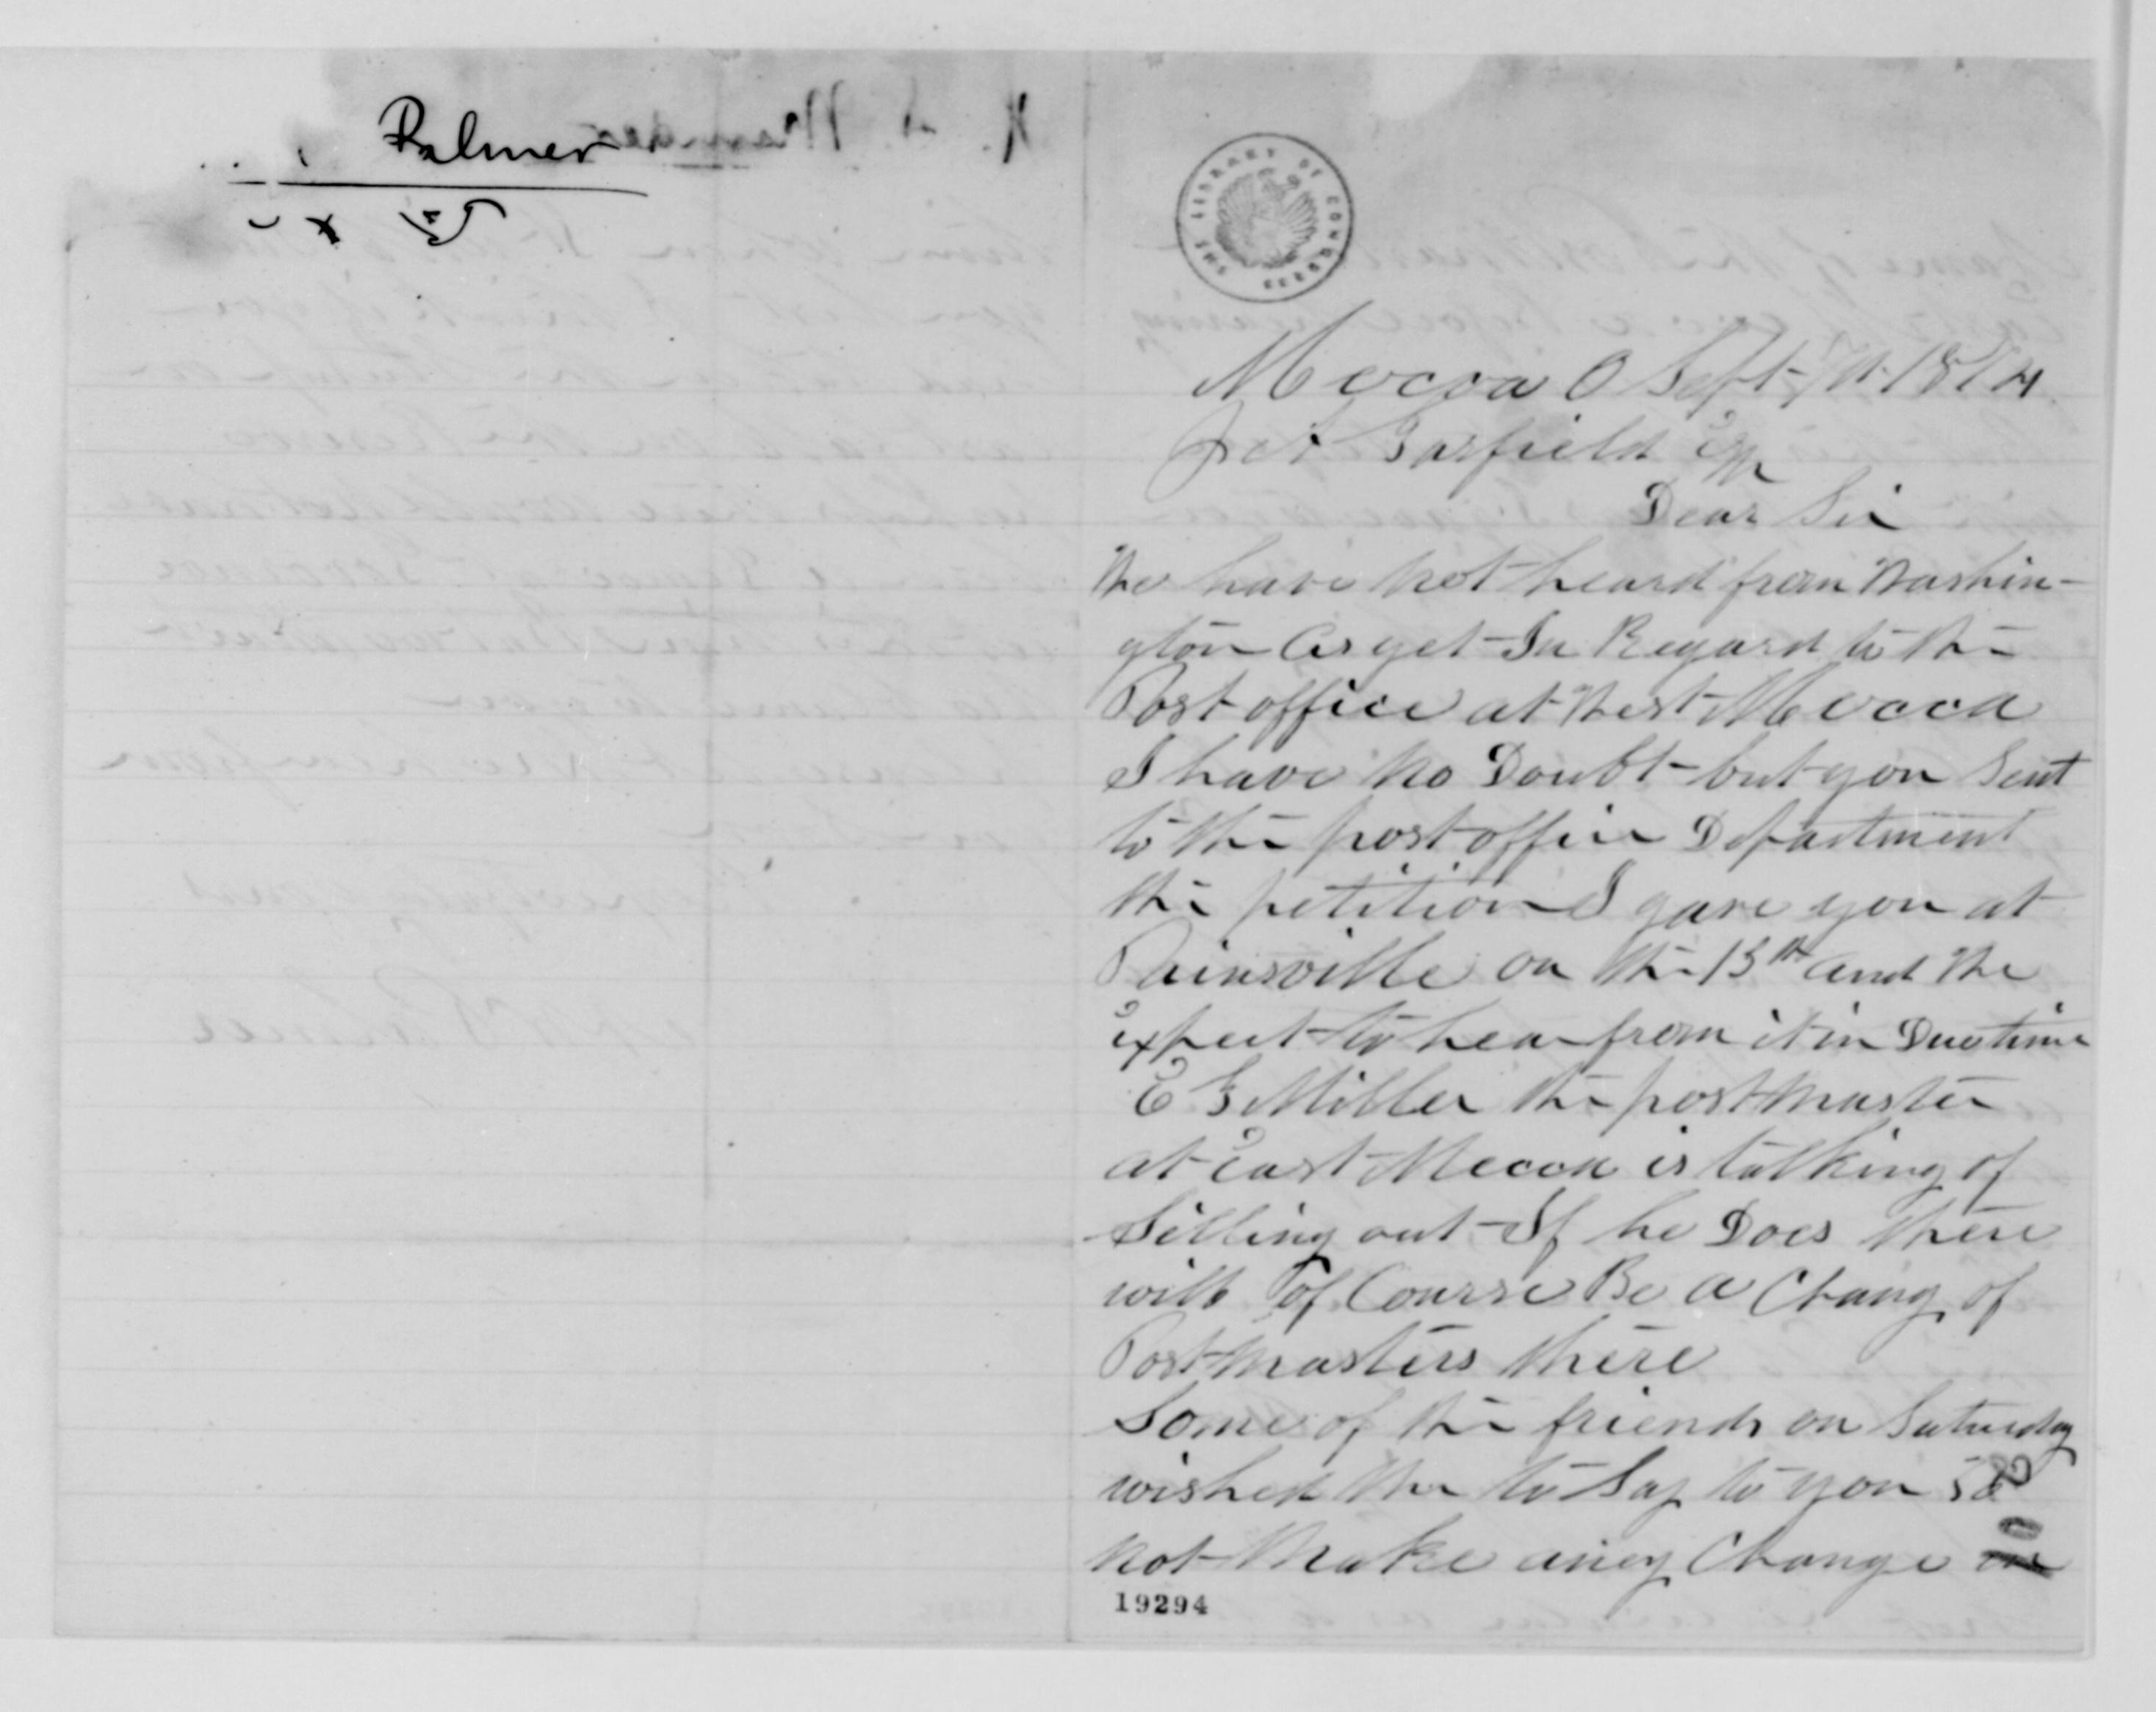 Palmer
THE LIBRARY OF CONGRESS
Mecca O Sept 1874
J A Garfield Esq
Dear Sir
We have not heard from Washin-
gton as yet In Regard to the
Post office at West Mecca
I have no Doubt but you Sent
to the post office Department
the petition I gave you at
Painsville on the 13th and We
expect to hear from it in Due time
E G Miller the postmaster
at East Mecca is talking of
Selling out If he Does there
will of Course Be a Chang of
Postmasters there
Some of the friends on Saturday
wished me to Say to you to
not Make aney Change
19294